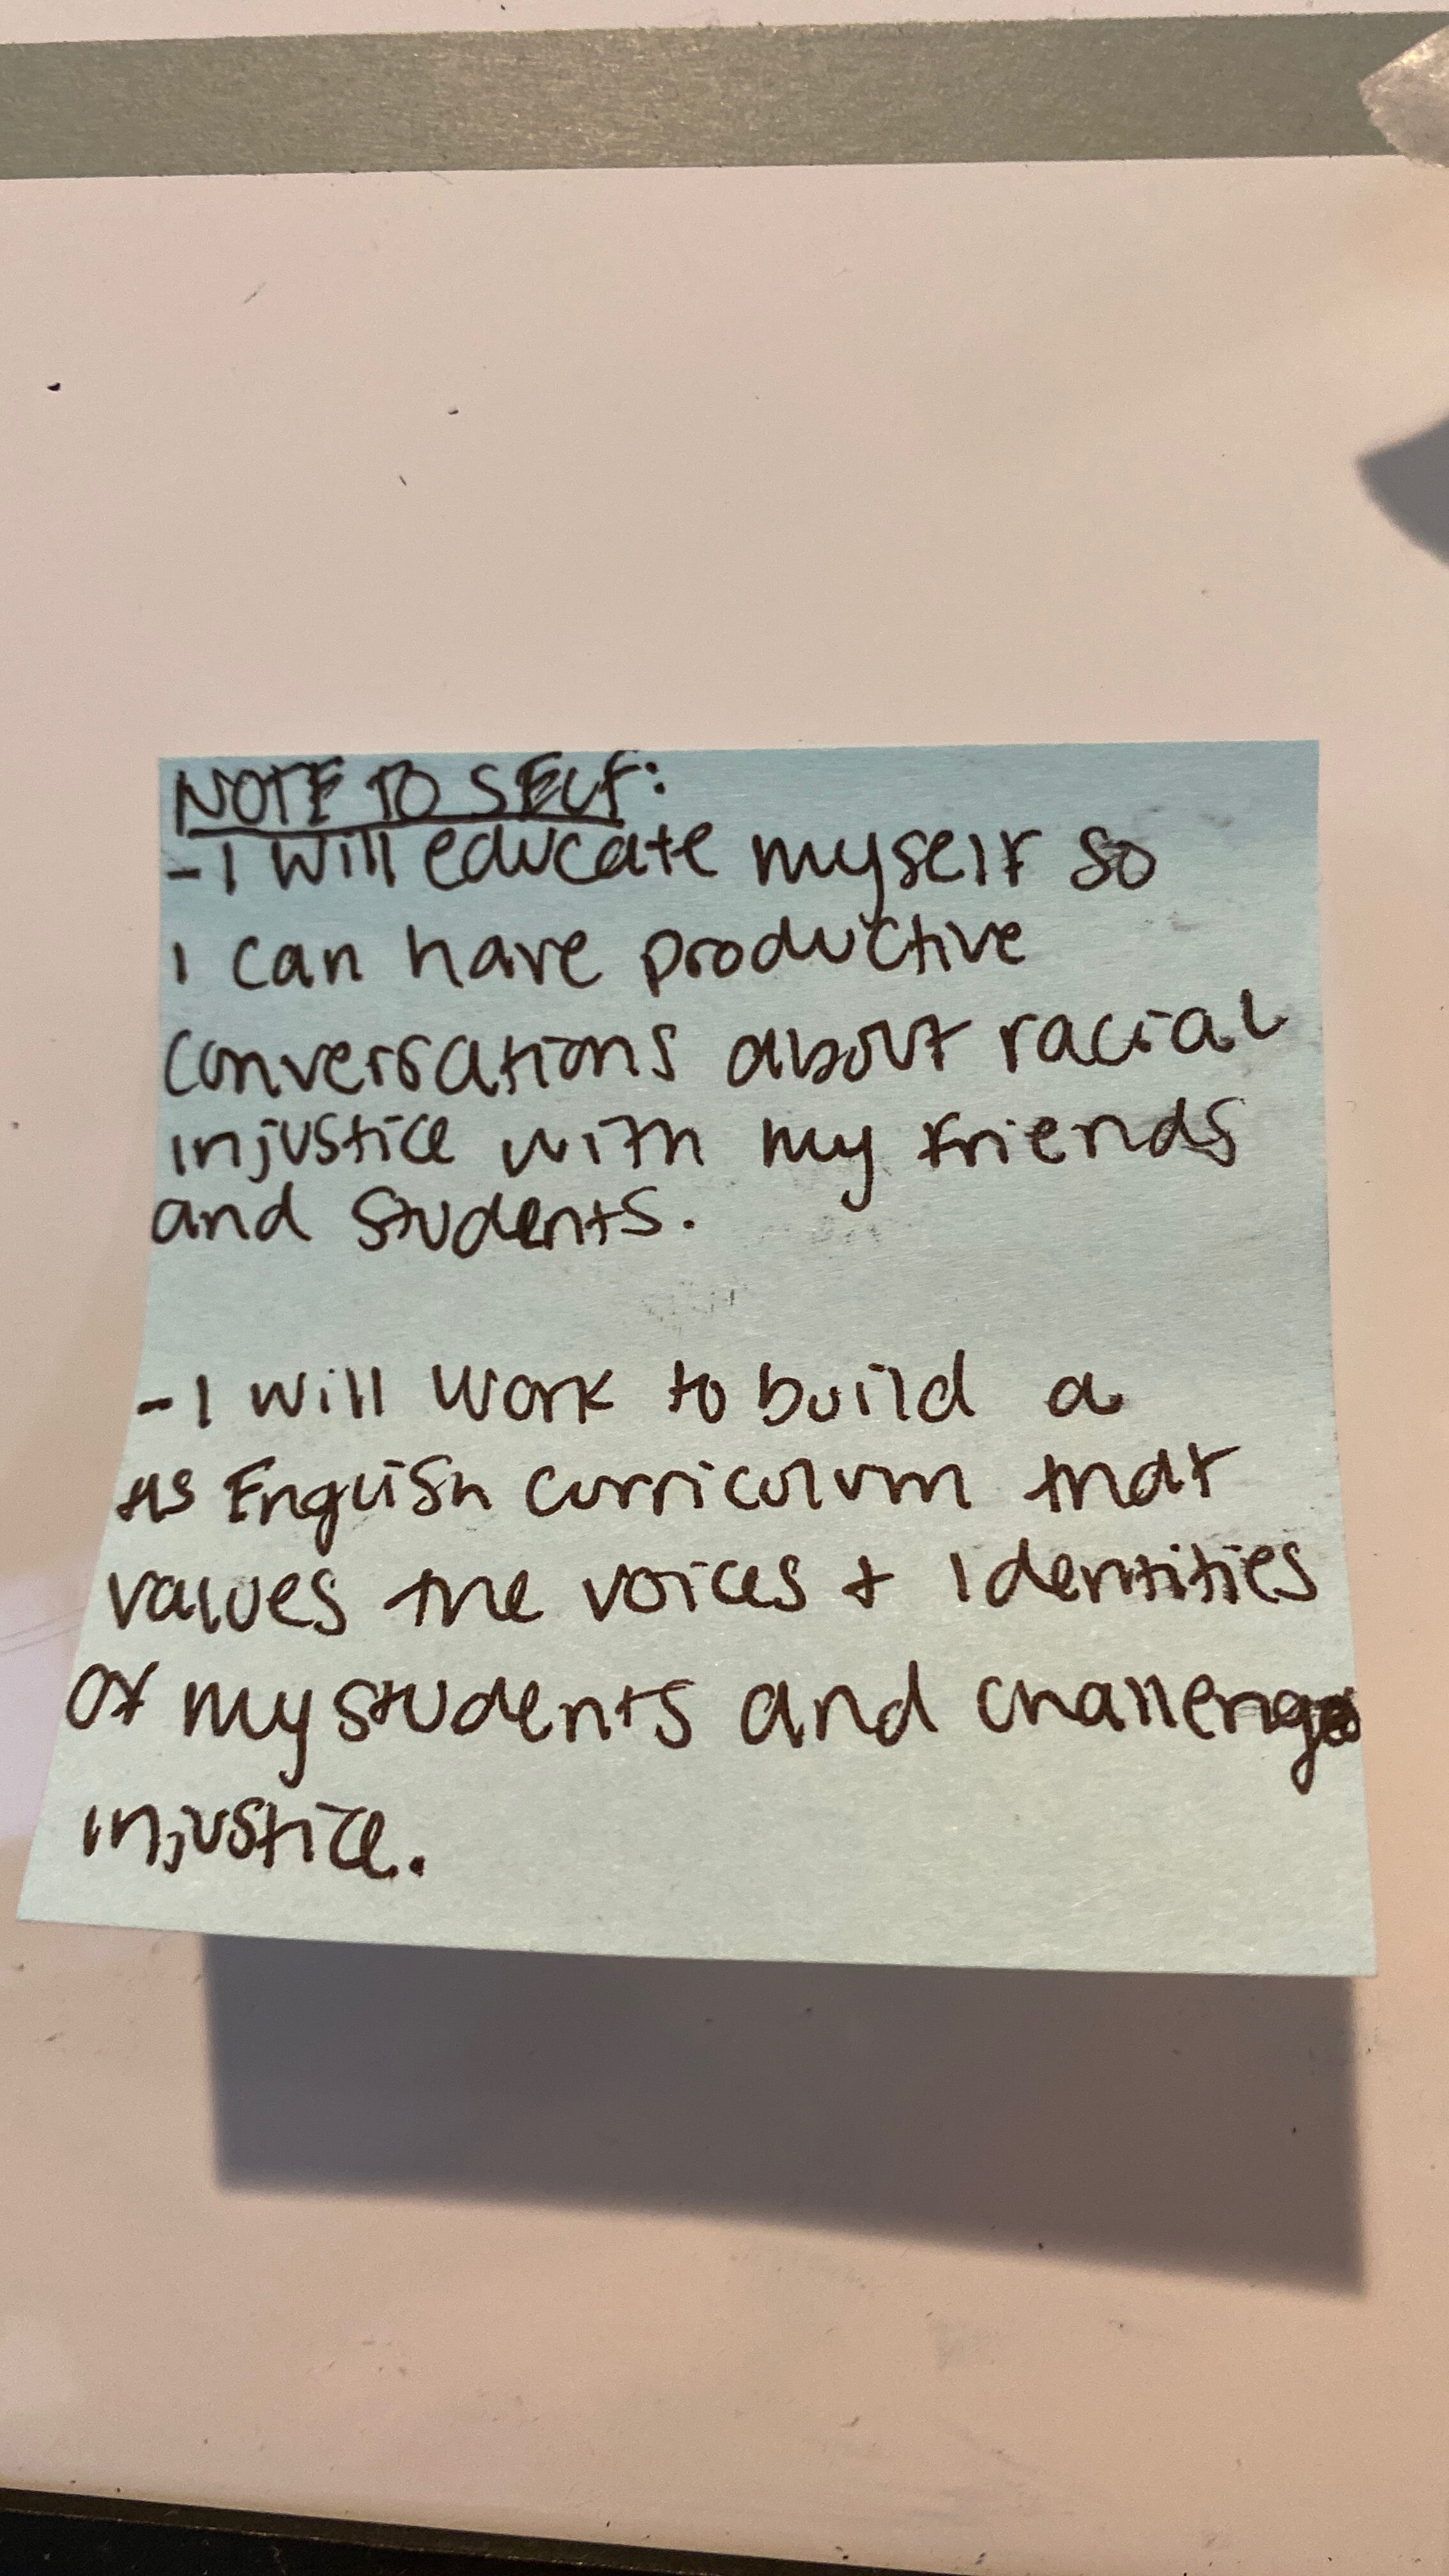 NOTE TO SELF:
- I will educate myself so
I can have productive
conversations about racial
injustice with my friends
and students.
- I will work to build a
HS English curriculum that
values the voices + identities
of my students and challenge
injustice.